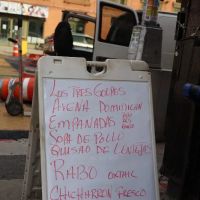 LOS TRES GOLPES
AVENA DOMINICAN
EMPANADAS
SOPA DE POLLO
GUISAO DE LENTEJAS
RABO OXTAIL
CHICHARRON FRESCO